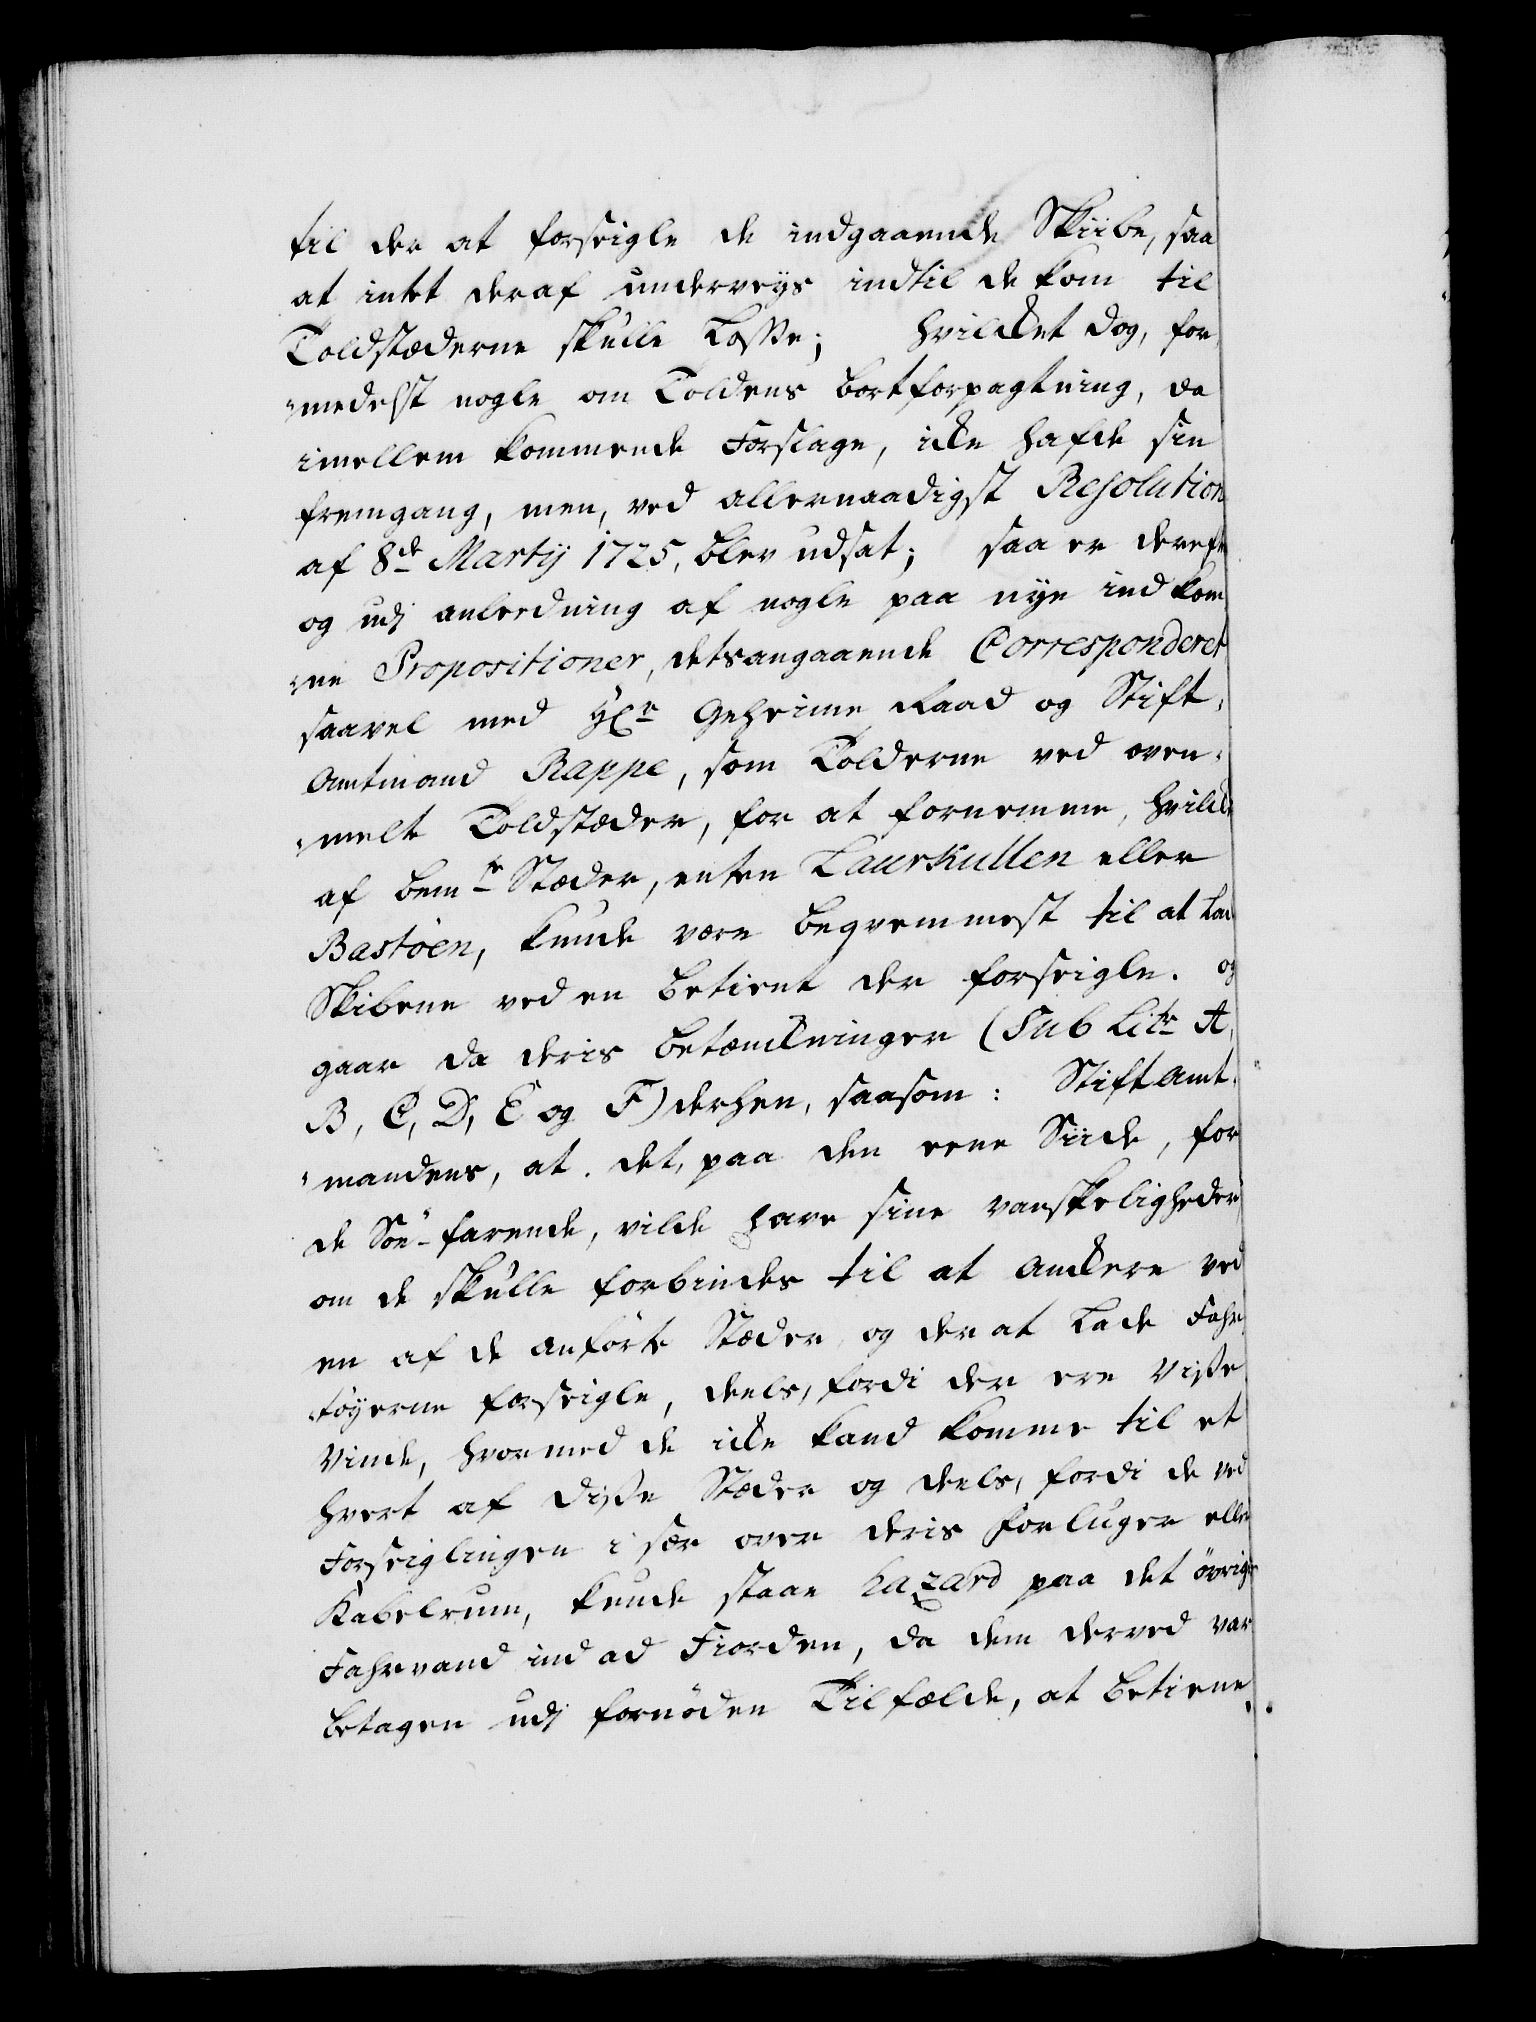 til der at forseigle de indgaaende Skiibe, saa
at intet deraf underveys indtil de kom til
Toldstæderne skulle Losse; hvilcket dog, for
medelst nogle om Toldens bortforpagtning, da
imellem kommende Forslage, icke hafde sin
fremgang, men, ved allernaadigst Resolution
af 8de Martij 1725, blev udsat; saa er dereft
og udj anleedning af nogle paa nye ind kom
ne Propositioner, detsangaaende Corresponderet
saavel med Hr Geheime Raad og Stift
Amtmand Rappe, som Tolderne ved oven
melte Toldstæder, for at fornemme, hvilcke
af bemte Stæder, enten Laurkullen eller
Bastöen, kunde være beqvemmest til at Lade
Skibene ved en betient der forseigle. og
gaar da deris betænckninger (Sub Litr A,
B, C, D, E og F) derhen, saasom: StiftAmt
mandens, at det, paa den eene Siide, for
de Söe-farende, vilde have sine vanskeligheder
om de skulle forbindes til at Anckere ved
en af de anförte Stæder og der at Lade Fahr
töyerne forseigle, deels, fordi der ere Visse
Vinde, hvormed de icke kand komme til et
hvert af disse Stæder og deels, fordi de ved
Forseiglingen i sær over deris Forluger eller
Kabelrum, kunde staae hazard paa det övrige
Fahrvand ind ad Fiorden, da dem derved var
betagen udj fornöden Tilfælde, at betiene